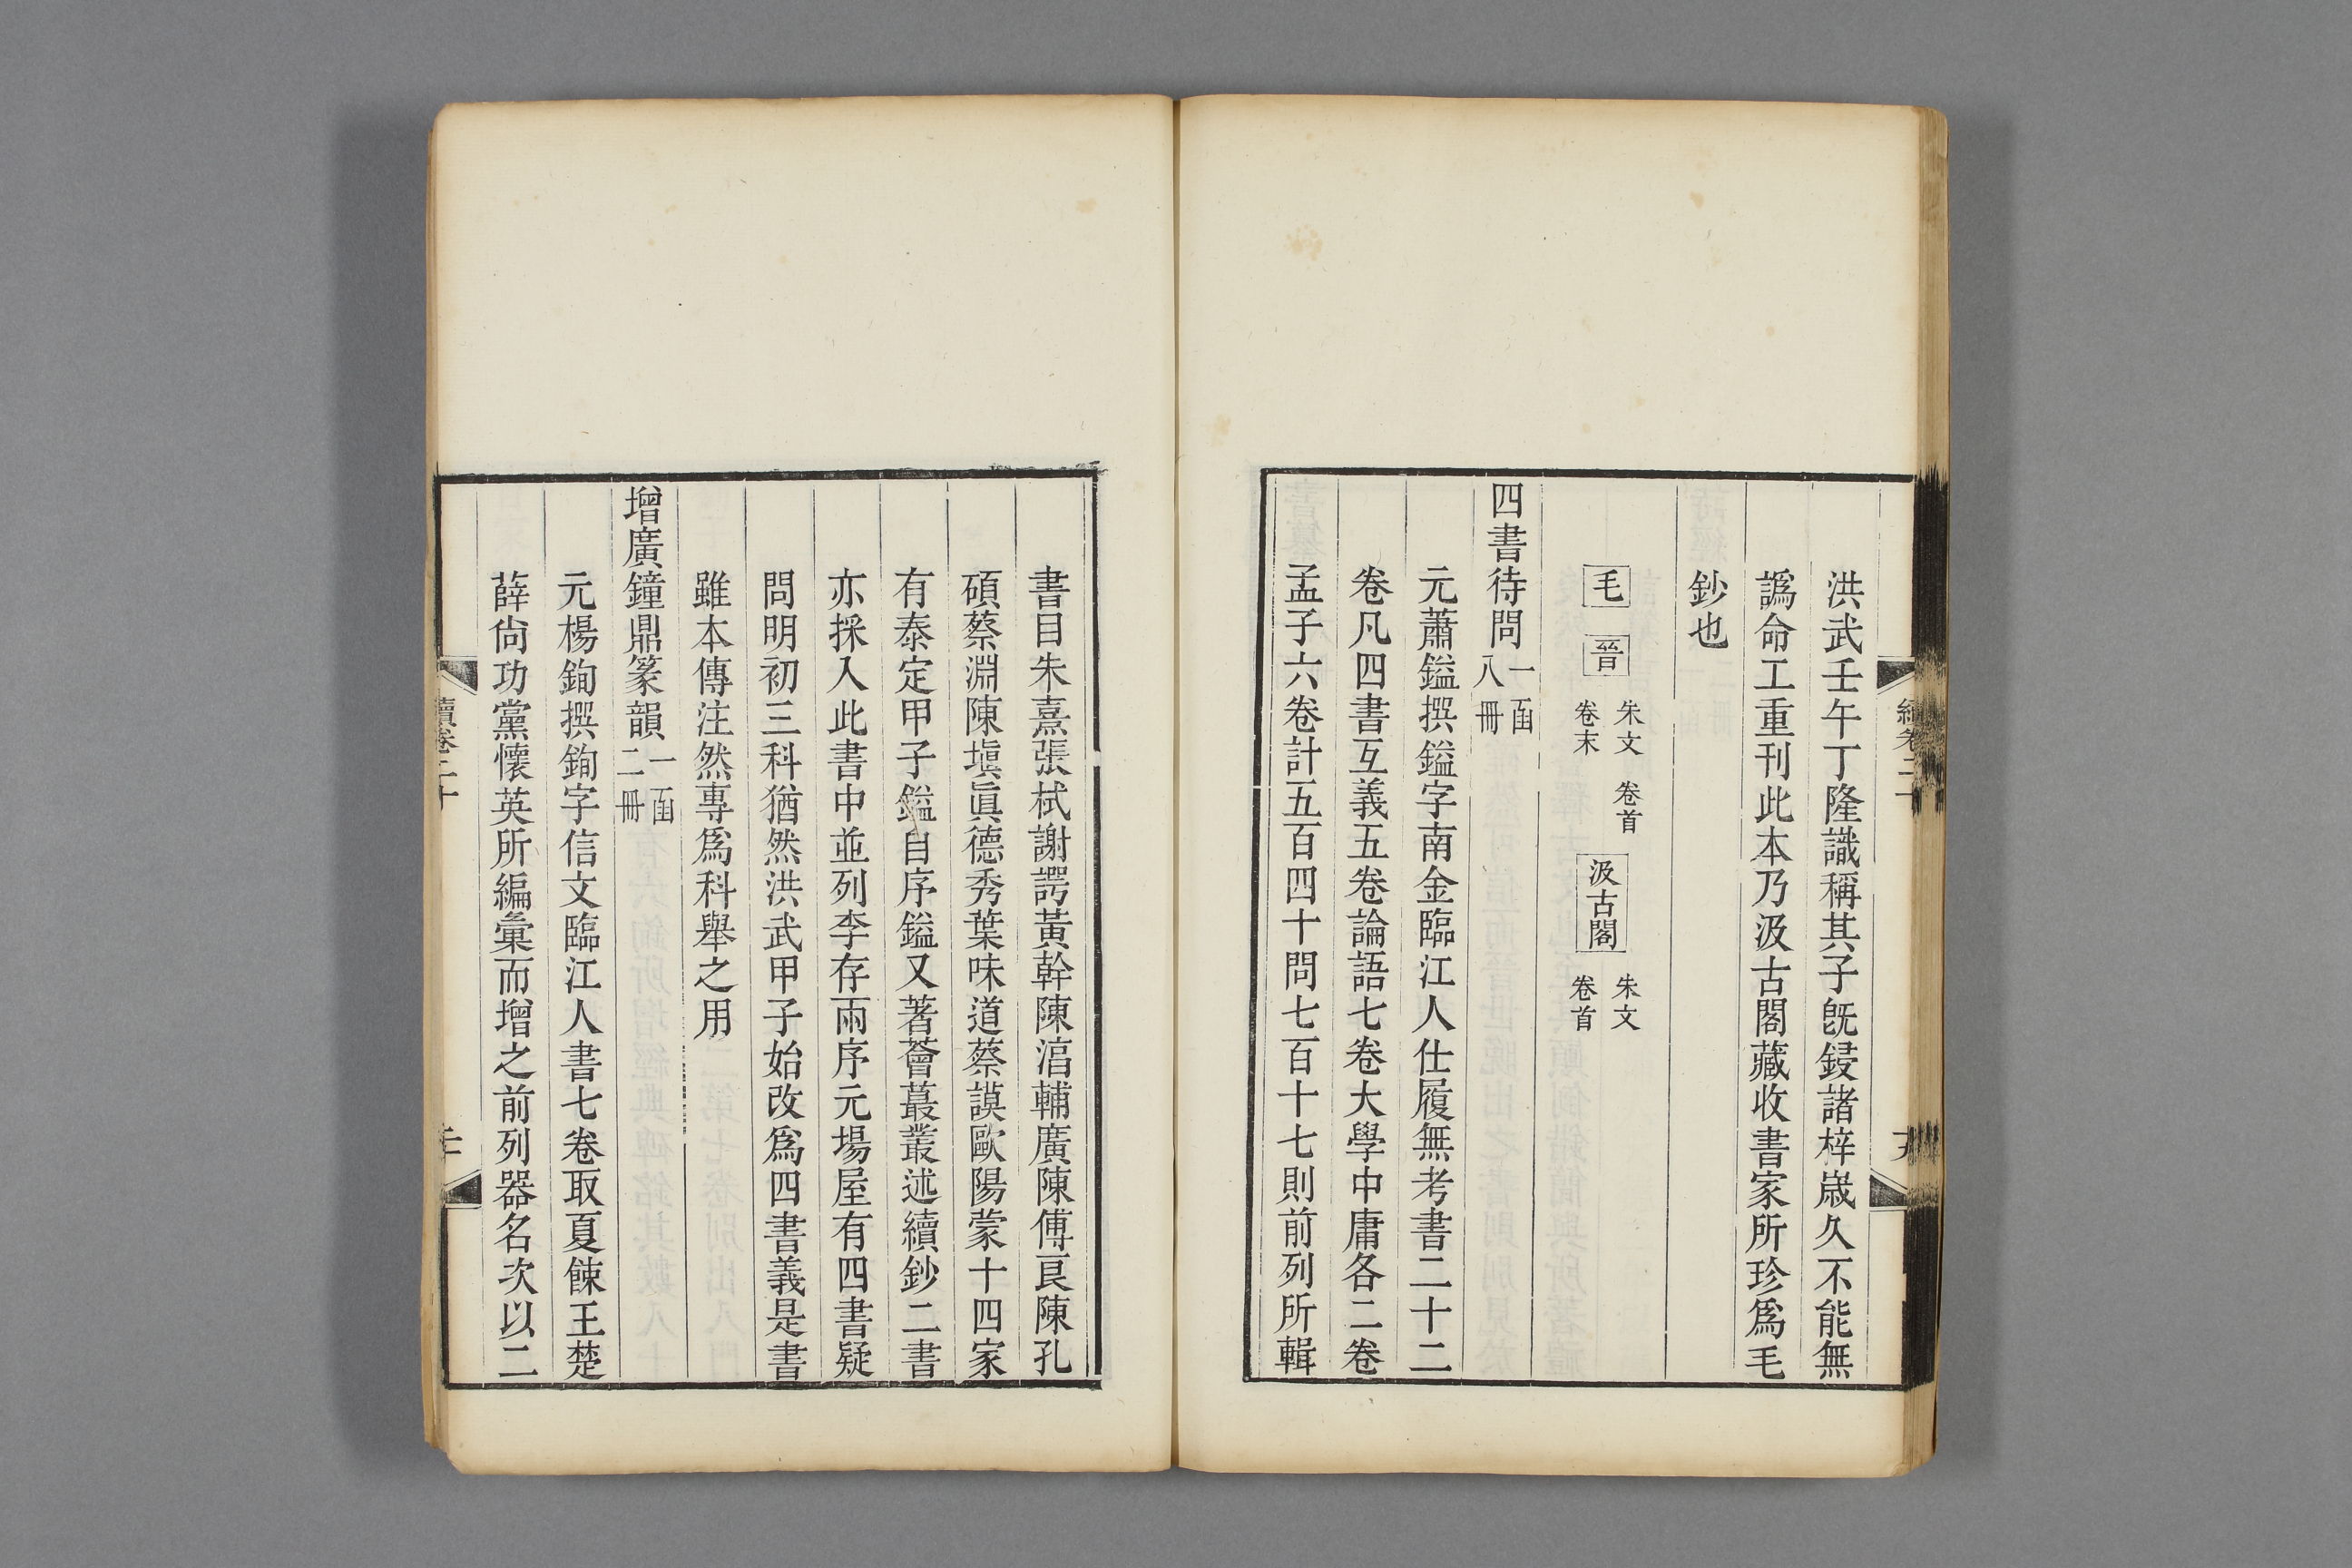 洪武壬午丁隆識稱其子旣鋟諸梓歲久不能無
譌命工重刊此本乃汲古閣藏收書家所珍爲毛
鈔也
毛 晉 朱文卷末 卷首 汲古閣 朱文卷首
四書待問 一函八冊
元蕭鎰撰鎰字南金臨江人仕履無考書二十二
卷凡四書互義五卷論語七卷大學中庸各二卷
孟子六卷計五百四十問七百十七則前列所輯
書目朱熹張栻謝諤黃幹陳淊輔廣陳傅良陳孔
碩蔡淵陳塡眞德秀葉味道蔡謨歐陽蒙十四家
有泰定甲子鎰自序鎰又著薈蕞叢述續鈔二書
亦採入此書中並列李存兩序元場屋有四書疑
問明初三科猶然洪武甲子始改爲四書義是書
雖本傳注然專爲科舉之用
增廣鐘鼎篆韻 一函二冊
元楊鉤撰鉤字信文臨江人書七卷取夏餗王楚
薛尙功黨懷英所編彙而增之前列器名次以二
續卷二十